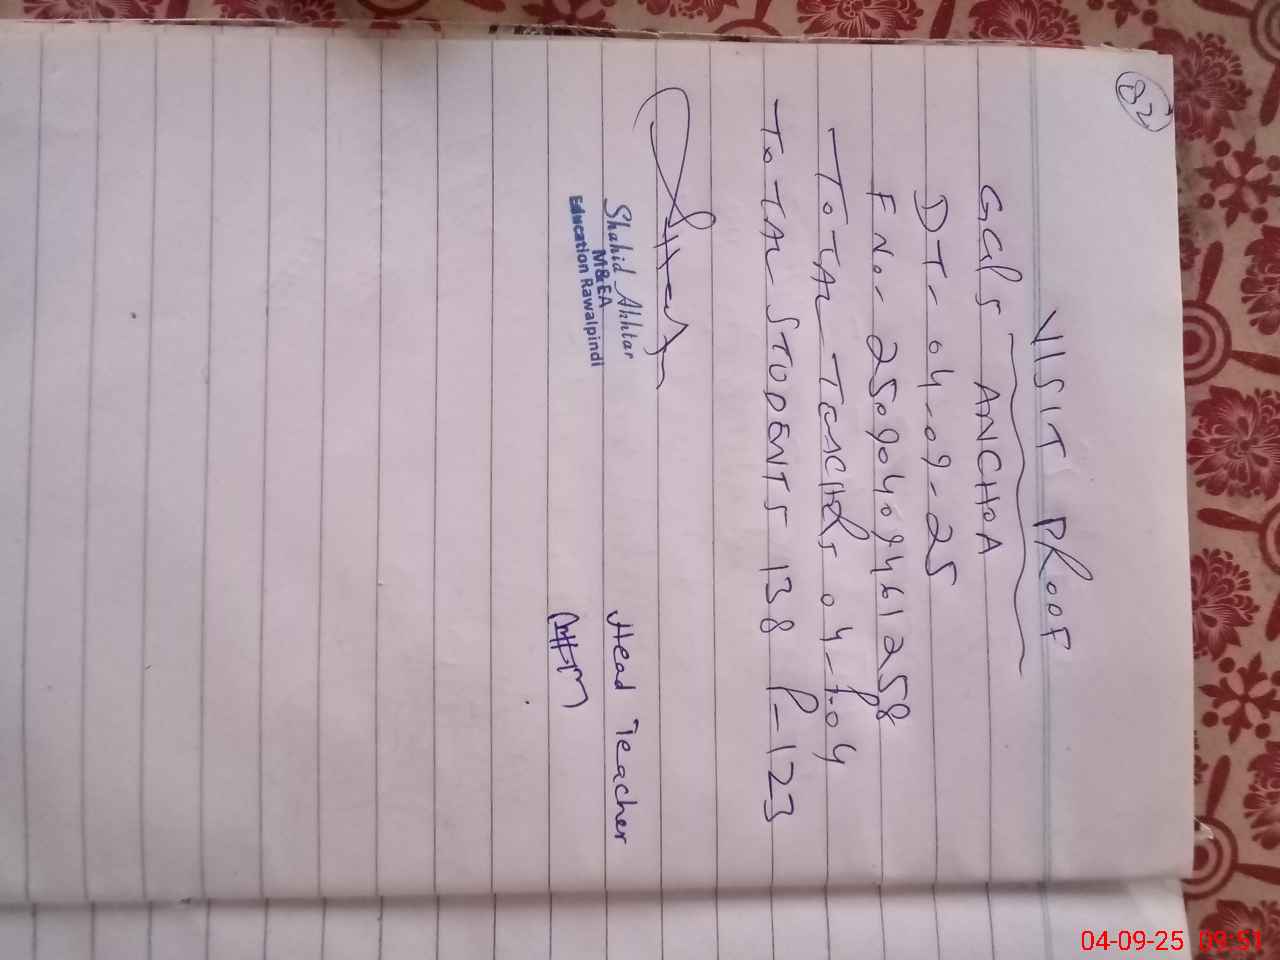 82
VISIT PROOF
GGPS ANCHOA
DT- 04-09-25
F No- 25090409461258
TOTAL TEACHERS 04-P-04
TOTAL STUDENTS 138 P-123
Shahid Akhtar
M&EA
Education Rawalpindi
Head Teacher
04-09-25 09:51